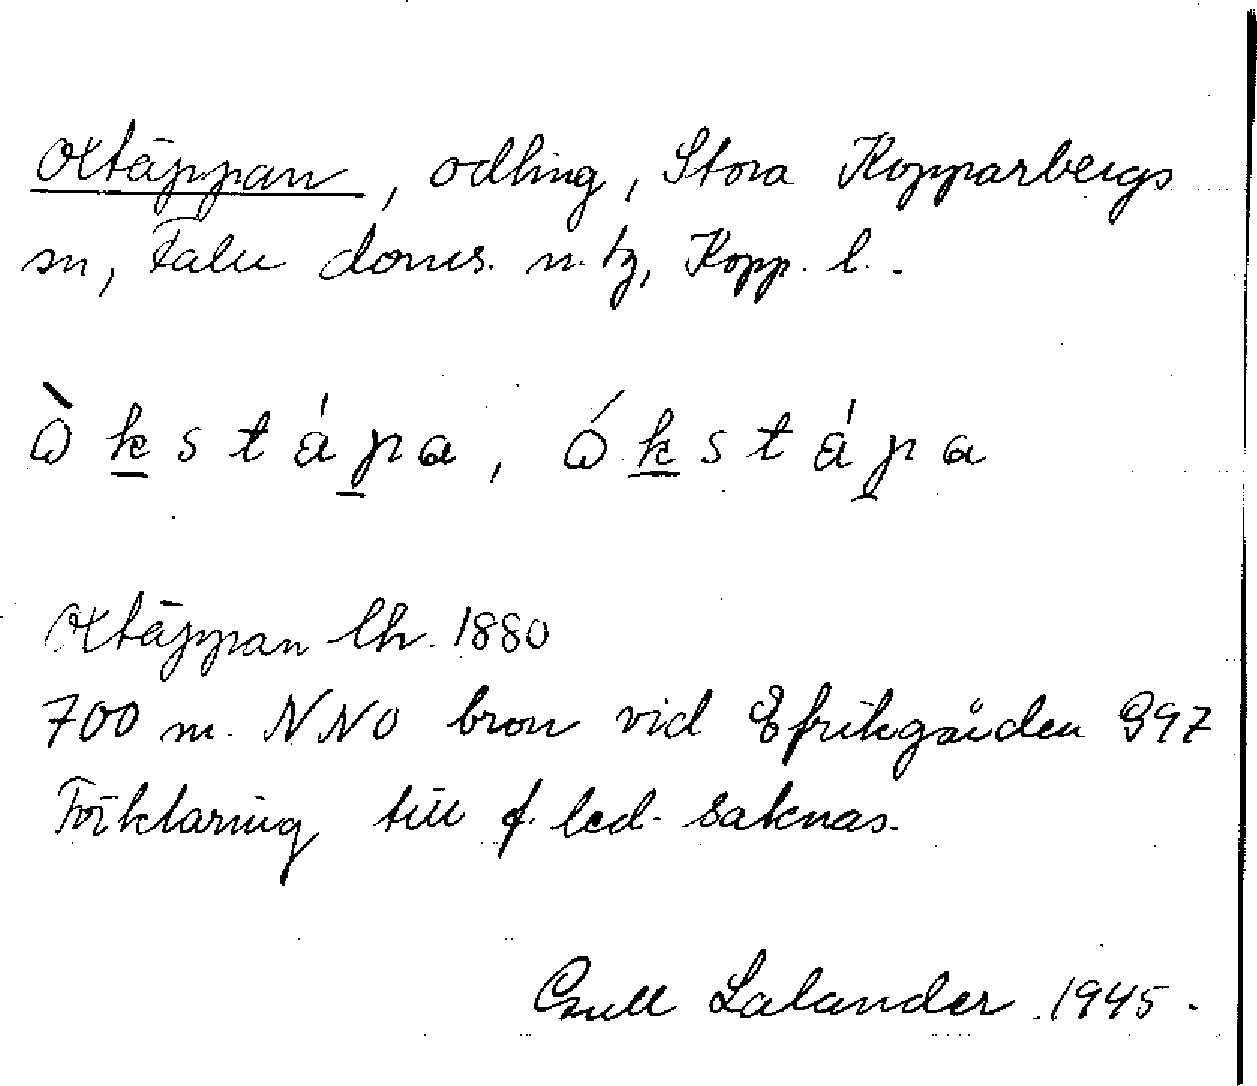 Oxtäppan, odling, Stora Kopparbergs
sn, Falu doms. n. tg, Kopp. l.
ò k s t á p a, ó k s t á p a
Oxtäppan lh. 1880
700 m. NNO bron vid Efrikgården 997
Förklaring till f. led. saknas.
Lalander 1945.